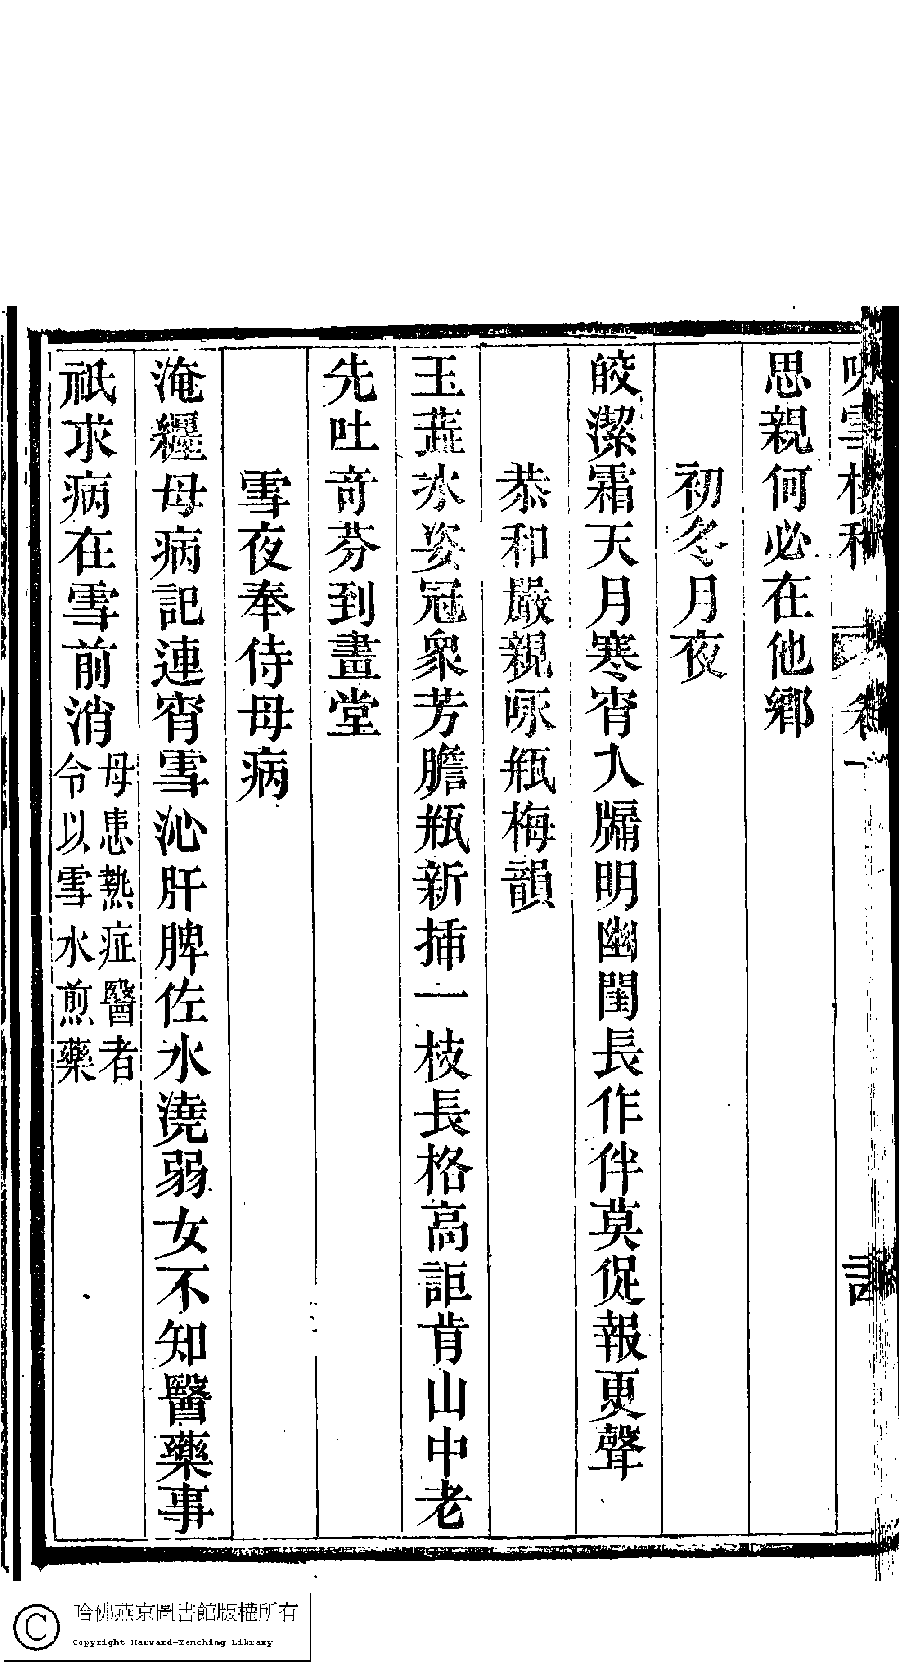 思親何必在他鄉
初冬月夜
皎潔霜天月寒宵入牖明幽閨長作伴莫促報更聲
恭和嚴親咏瓶梅韻
玉蕋氷姿冠衆芳膽瓶新插一枝長格高詎肯山中老
先吐奇芬到畫堂
雪夜奉侍母病
淹纏母病記連宵雪沁肝脾佐水澆弱女不知醫藥事
祇求病在雪前消母患熱症醫者令以雪水煎藥
哈佛燕京圖書館版權所有
Copyright Harvard-Yenching Library